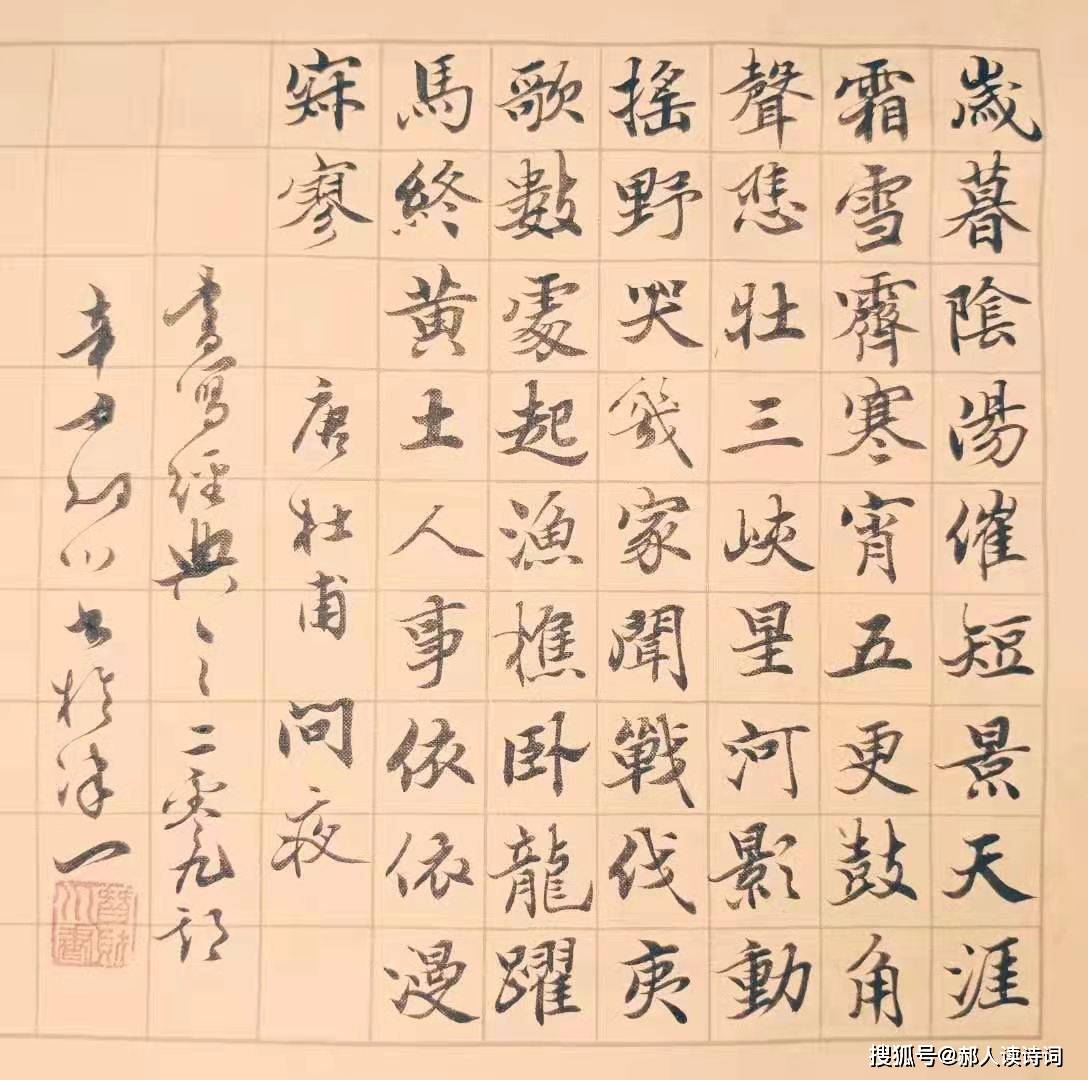 歲暮陰湯催短景天涯
霜雪霽寒宵五更鼓角
聲悲壯三峽星河影動
搖野哭幾家聞戰伐夷
歌數處起漁樵卧龍躍
馬終黄土人事依依漫
寂寥 唐杜甫 问夜
書寫經典之二零九
辛丑 书於津
搜狐号@郝人读诗词